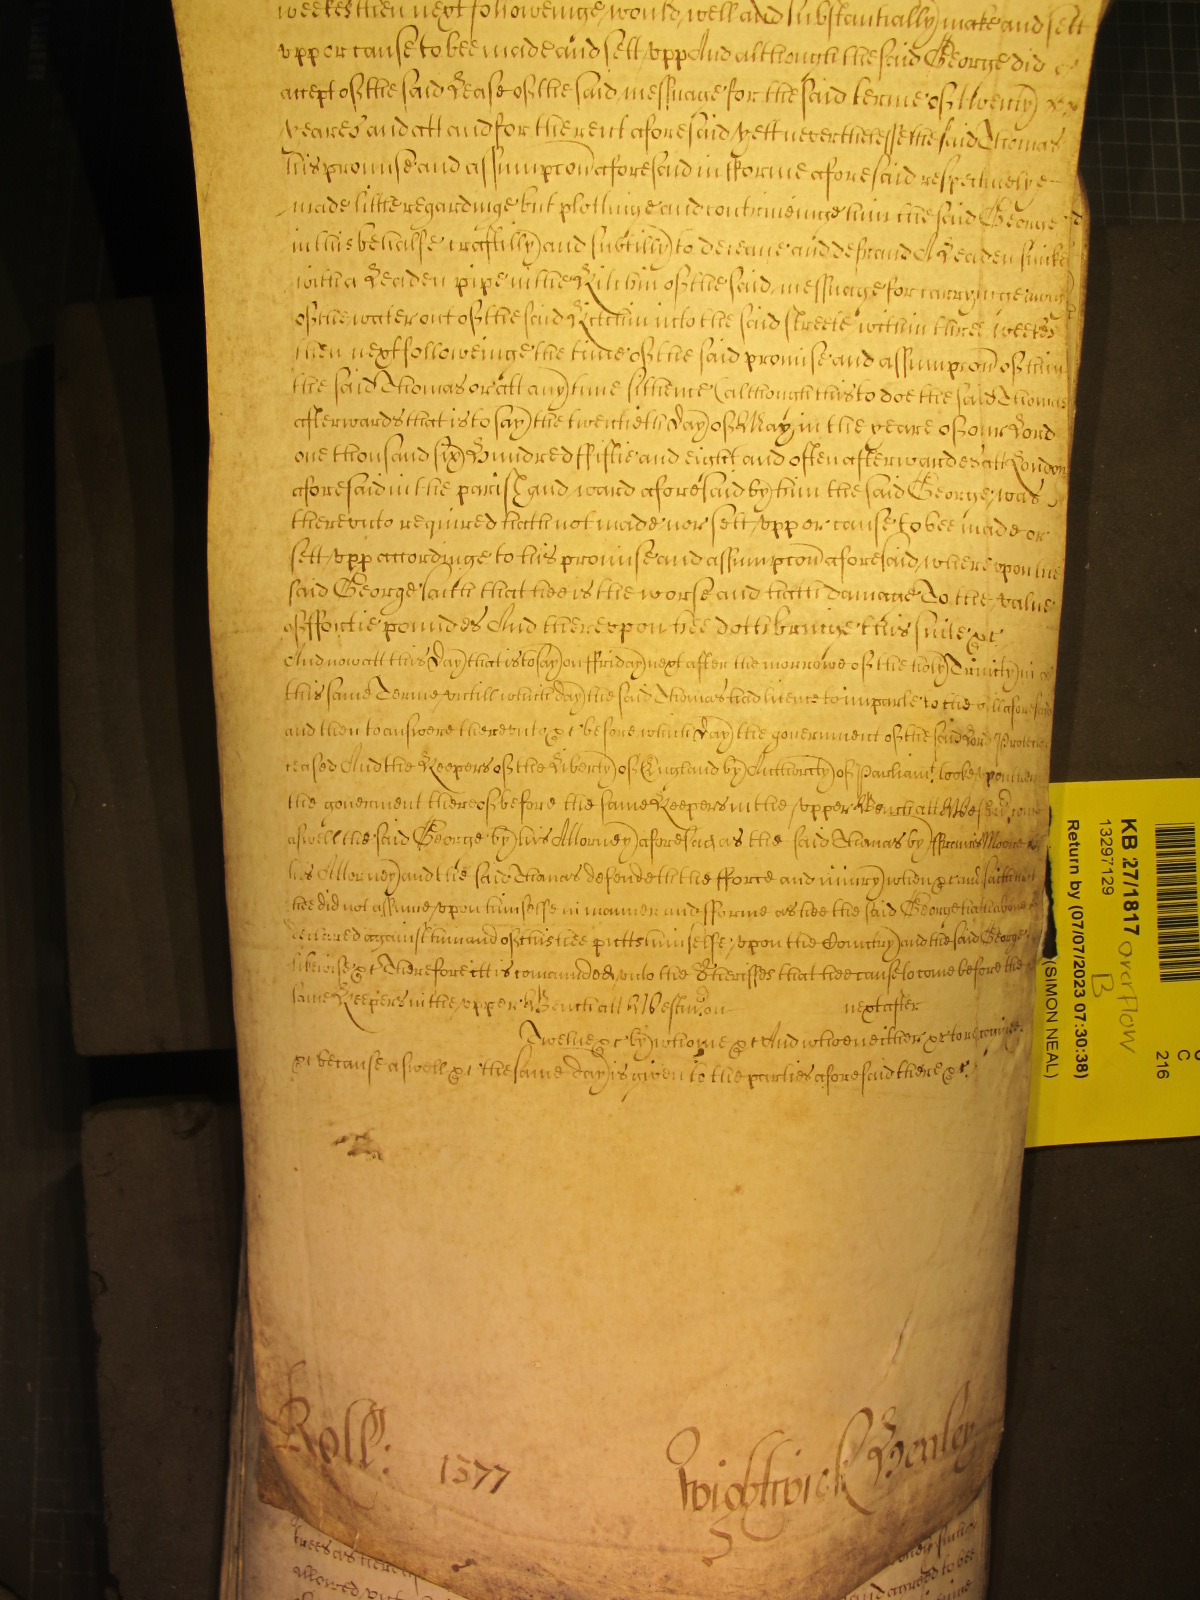 weekes then next followeinge would well and substantially make and sett
vpp or cause to bee made and sett vpp And although the said George did
accept of the said Lease of the said messuage for the said terme of twenty
yeares and att and for the rent aforesaid yett neverthelesse the said Thomas
his promise and assumpcon aforesaid in fforme aforesaid respectiuelye
made little regardinge but plottinge and contriueinge him the said George
in this behalfe craftilly and subtilly to deceaue and defraud A Leaden sinke
with a Leaden pipe in the Kitchin of the said messuage for carryinge away
of the water out of the said Kitchin into the said streete within three weekes
then next followeinge the time of the said promise and assumpcon of him
the said Thomas or att any time sithence (although this to doe the said Thomas
afterwards that is to say the twentieth day of May in the yeare of our Lord
one thousand six Hundred ffiftie and eight and often afterwardes att London
aforesaid in the parish and ward aforesaid by him the said George was
therevnto required hath not made nor sett vpp or cause to bee made or
sett vpp accordinge to his promise and assumpcon aforesaid wherevpon the
said George saith that hee is the worse and hath damage To the value
of ffortie poundes And therevpon hee doth bringe this suite &c
And now att this day that is to say on ffriday next after the morrowe of the holy Trinity in
this same Terme vntill which day the said Thomas had licence to imparle to the bill aforesaid
and then to answere therevnto &c before which day the government of the said Lord Protector
ceased And the Keepers of the Liberty of England by Authority of Parliamt. tooke vpon them
the goverment thereof before the same Keepers in the vpper Bench att Westmr. come
aswell the said George by his Attorney aforesaid as the said Thomas by ffrancis Moore
his Attorney and the said Thomas defendeth the fforce and iniury when &c and saith that
hee did not assume vpon himselfe in manner and fforme as hee the said George hath aboue
declared against him and of this hee putts himselfe vpon the Country and the said George
likewise &c Therefore itt is comaunded vnto the Sheriffes that hee cause to come before the
same Keepers in the vpper Bench att Westmr. on next after
Twelue &c by whome &c And who neither &c to recognize
&c because aswell &c the same day is given to the parties aforesaid there &c.
Roll: 1377 Wightwick Henley
KB 27/1817 overflow
B
13297129
Return by (07/07/2023 07:30:38)
(SIMON NEAL)
C
216